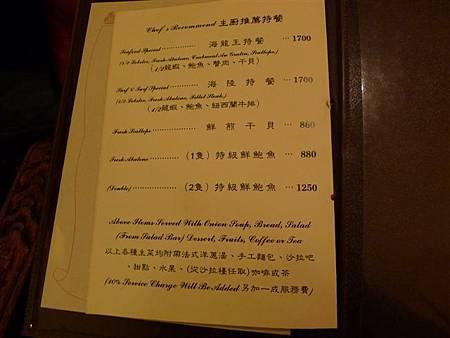 Chef's Recommend 主廚推薦特餐
Seafood Special 海龍王特餐 1700
(1/2 Lobster, Fresh Abalone, Crabmeat Au Gratin, Scallops)
(1/2龍蝦、鮑魚、蟹肉、干貝)
Surf & Turf Special 海陸特餐 1700
(1/2 Lobster, Fresh Abalone, Fillet Steak)
(1/2龍蝦、鮑魚、紐西蘭牛排)
Fresh Scallops 鮮煎干貝 860
Fresh Abalone (1隻)特級鮮鮑魚 880
(Double) (2隻)特級鮮鮑魚 1250
Above Items Served With Onion Soup, Bread, Salad
(From Salad Bar) Dessert, Fruits, Coffee or Tea
以上各種主菜均附帶法式洋蔥湯、手工麵包、沙拉吧
、甜點、水果、(從沙拉檯任取)咖啡或茶
(10% Service Charge Will Be Added 另加一成服務費)